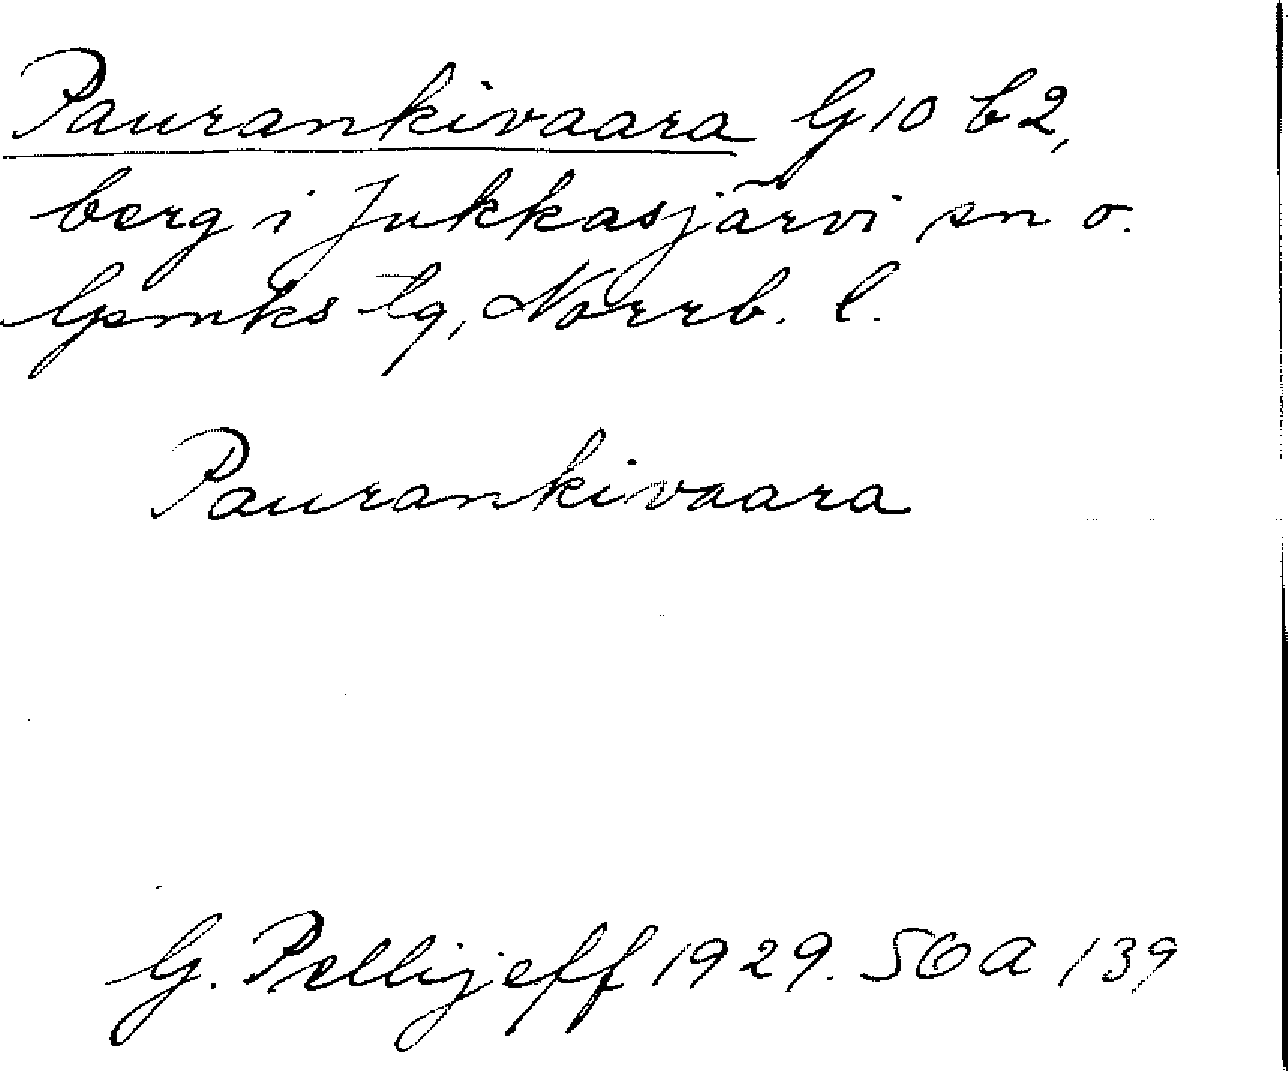 Paurankivaara G10 b2,
berg i Jukkasjärvi sn o.
Gpmks tg, Norrb. l.
Paurankivaara
G. Pellijeff 1929. SOA 139